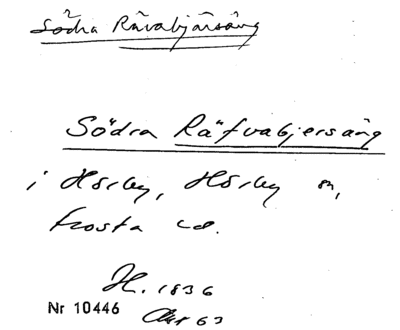 Södra Rävabjärsäng
Södra Räfvabjersäng
i Hörby, Hörby sn,
Frosta hd.
H. 1836
Akt 63
Nr 10446